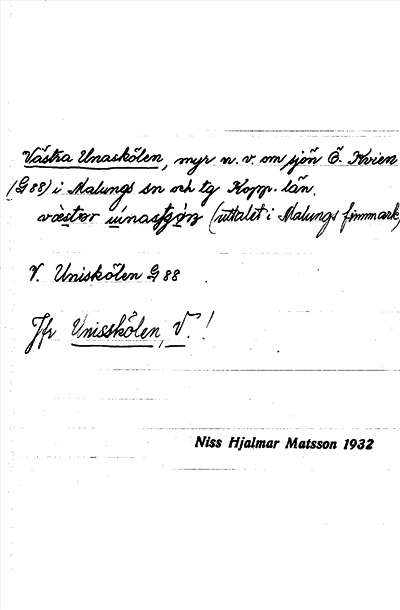 Västra Unaskölen, myr n. v. om sjön Ö. Kvien
(G 88) i Malungs sn och tg Kopp. län.
(uttalet i Malungs finnmark)
V. Uniskölen G 88
Jfr Unisskölen, V.!
Niss Hjalmar Matsson 1932